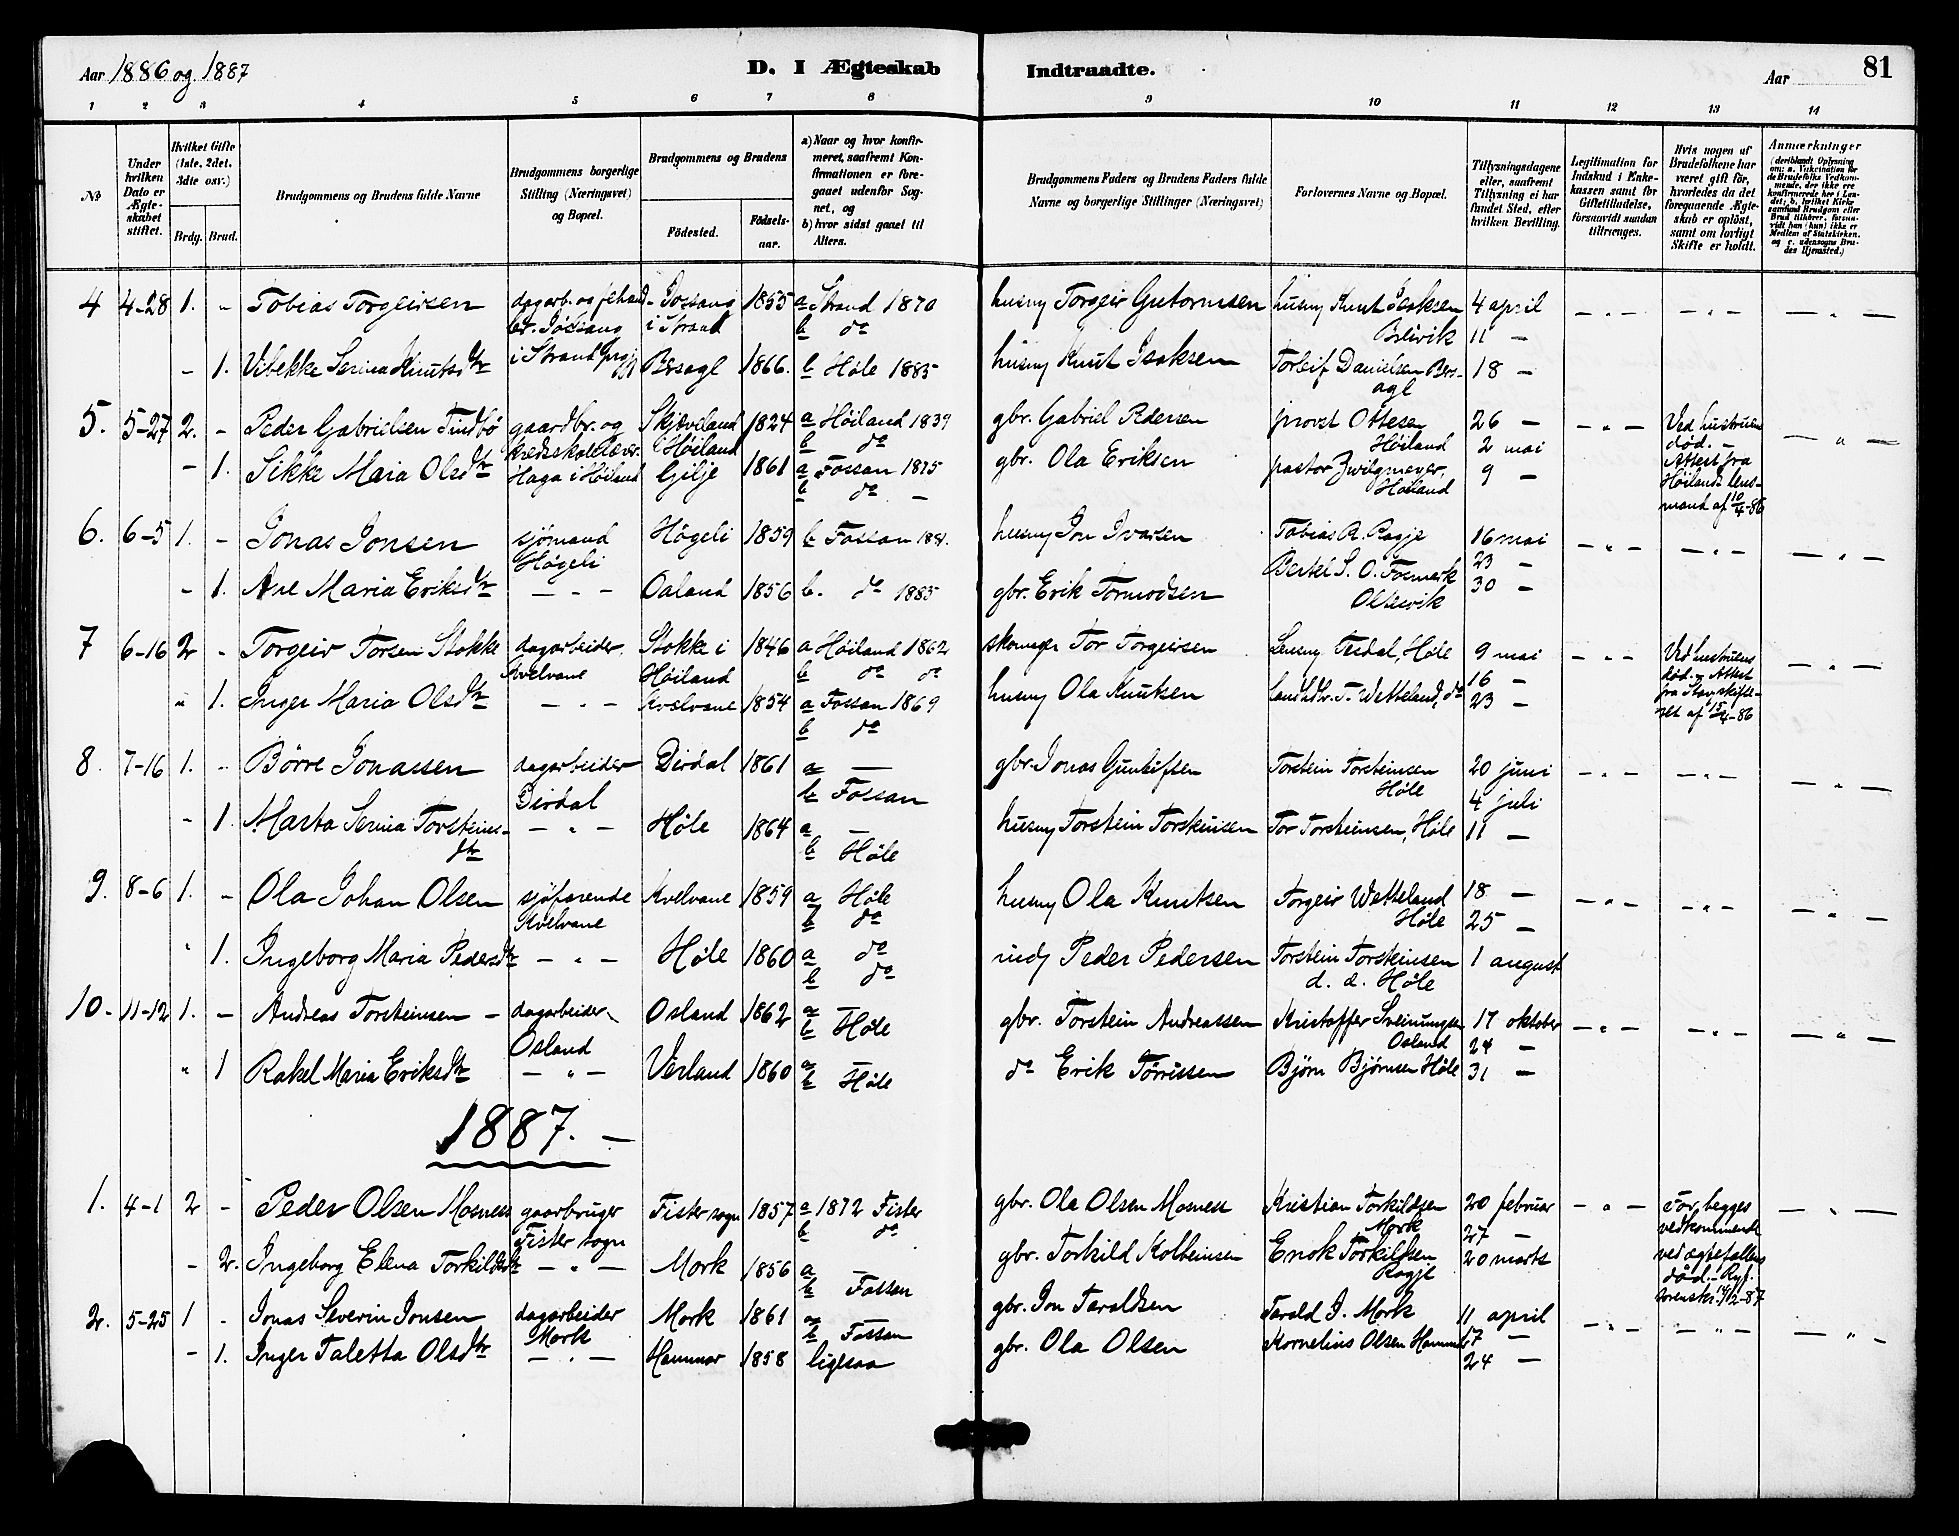 Aar 1886 og 1887
D. I Ægteskab Indtraadte.
Aar
81
1 2 3 4 5 6 7 8 9 10 11 12 13 14
№
Under hvilken Dato er Ægteskabet stiftet.
Hvilket Gifte (1ste, 2det, 3die osv.)
Brdg. Brud.
Brudgommens og Brudens fulde Navne
Brudgommens borgerlige Stilling (Næringsvei) og Bopæl.
Brudgommens og Brudens
Fødested.
Fødselsaar.
a) Naar og hvor konfirmeret, saafremt Konfirmationen er foregaaet udenfor Sognet, og
b) hvor sidst gaaet til Alters.
Brudgommens Faders og Brudens Faders fulde Navne og borgerlige Stillinger (Næringsvei)
Forlovernes Navne og Bopæl.
Tillysningsdagene eller, saafremt Tillysning ei har fundet Sted, efter hvilken Bevilling.
Legitimation for Indskud i Enkekassen samt for Giftetilladelse, forsaavidt saadan tiltrænges.
Hvis nogen af Brudefolkene har været gift før, hvorledes da det foregaaende Ægteskab er opløst, samt om lovligt Skifte er holdt.
Anmærkninger
4 4-28 1. - Tobias Torgeirsen 1855 a Strand 1870 husmy Torgeir Gutormsen husmy Knut Isaksen 4 april
br. Jössang i Strand b do Brevik 11 -
- 1. Vibekke Serina Knutsdtr i Strand prgj Bersagl 1866. b Høle 1885 husmy Knut Isaksen Torleif Danielsen Bersagl 18 -
5. 5-27 2. - Peder Gabrielsen Tindbö gaardbr. og Skjæveland 1824 a Høiland 1839 gbr. Gabriel Pedersen provst Ottesen 26 - Ved hustruens
kredsskolelærer i Høiland b do Høiland 2 mai død. -
- 1. Sikke Maria Olsdtr Haga i Høiland Gilje 1861 a Fossan 1875 gbr. Ola Eriksen pastor Zwilgmeyer, 9 - Attest fra
b do - Høiland Høilands lensmand af 10/4-86
6. 6-5 1. - Jonas Jonsen sjömand Högeli 1859 b Fossan 1881. husmy Jon Ivarsen Tobias R. Ragje 16 mai
Högeli Bertel S. O. Fosmark 23 -
- 1. Ane Maria Eriksdtr - " - Osland 1856 b. do 1885 gbr. Erik Tormodsen Oltesvik 30 -
7 6-16 2 - Torgeir Torsen Stokke dagarbeider. Stokke i 1846 a Høiland 1862 skomager Tor Torgeirsen Lensmy Tesdal, Høle 9 mai Ved hustruens
Kvelvane Høiland b do do 16 - død. Attest
" 1. Inger Maria Olsdtr - " - Kvelvane 1854 a Fossan 1869 husmy Ola Knutsen Landhdlr. T. Wetteland, do 23 - fra Stav. skifteret af 15/4-86
b do
8. 7-16 1. - Börre Jonassen dagarbeider Dirdal 1861 a - gbr. Jonas Gunleifsen Torstein Torsteinsen 20 juni
Dirdal b Fossan Høle 4 juli
- 1 Marta Serina Torsteinsdtr - " - Høle 1864 a - husmy Torstein Torsteinsen Tor Torsteinsen, Høle 11 -
b Høle
9. 8-6 1. - Ola Johan Olsen sjöfarende Kvelvane 1859 a Høle husmy Ola Knutsen Torgeir Wetteland 18 -
Kvelvane b do Høle 25 -
" 1. Ingeborg Maria Pedersdtr - " - Høle 1860 a do Peder Pedersen Torstein Torsteinsen 1 august
b do d. d. Høle
10. 11-12 1. - Andreas Torsteinsen - dagarbeider Osland 1862 a - gbr. Torstein Andreassen Kristoffer Sveinungsen 17 oktober
Osland b Høle Osland 24 -
" 1 Rakel Maria Eriksdtr - " - Verland 1860 a - do Erik Törrissen Björn Björnsen Høle 31 -
b Høle
1887. -
1. 4-1 2 - Peder Olsen Mosness gaarbruger Fister sogn 1857 a 1872 Fister gbr. Ola Olsen Mosness Kristian Torkildsen 20 februar - " - For begges
Fister sogn b do Mork 27 - vedkommende
- 2. Ingeborg Elena Torkildsdtr - " - Mork 1856 a - gbr. Torkild Kolbeinsen Enok Torkildsen 20 marts ved ægtefællens
b Fossan Ragje død. - Ryf.
2. 5-25 1 - Jonas Severin Jonsen dagarbeider Mork 1861 a - gbr. Jon Taraldsen Tarald J. Mork 11 april
Mork b Fossan
- 1. Inger Taletta Olsdtr - " - Hammar 1858 ligesaa gbr. Ola Olsen Kornelius Olsen Hammar 17 -
24 -